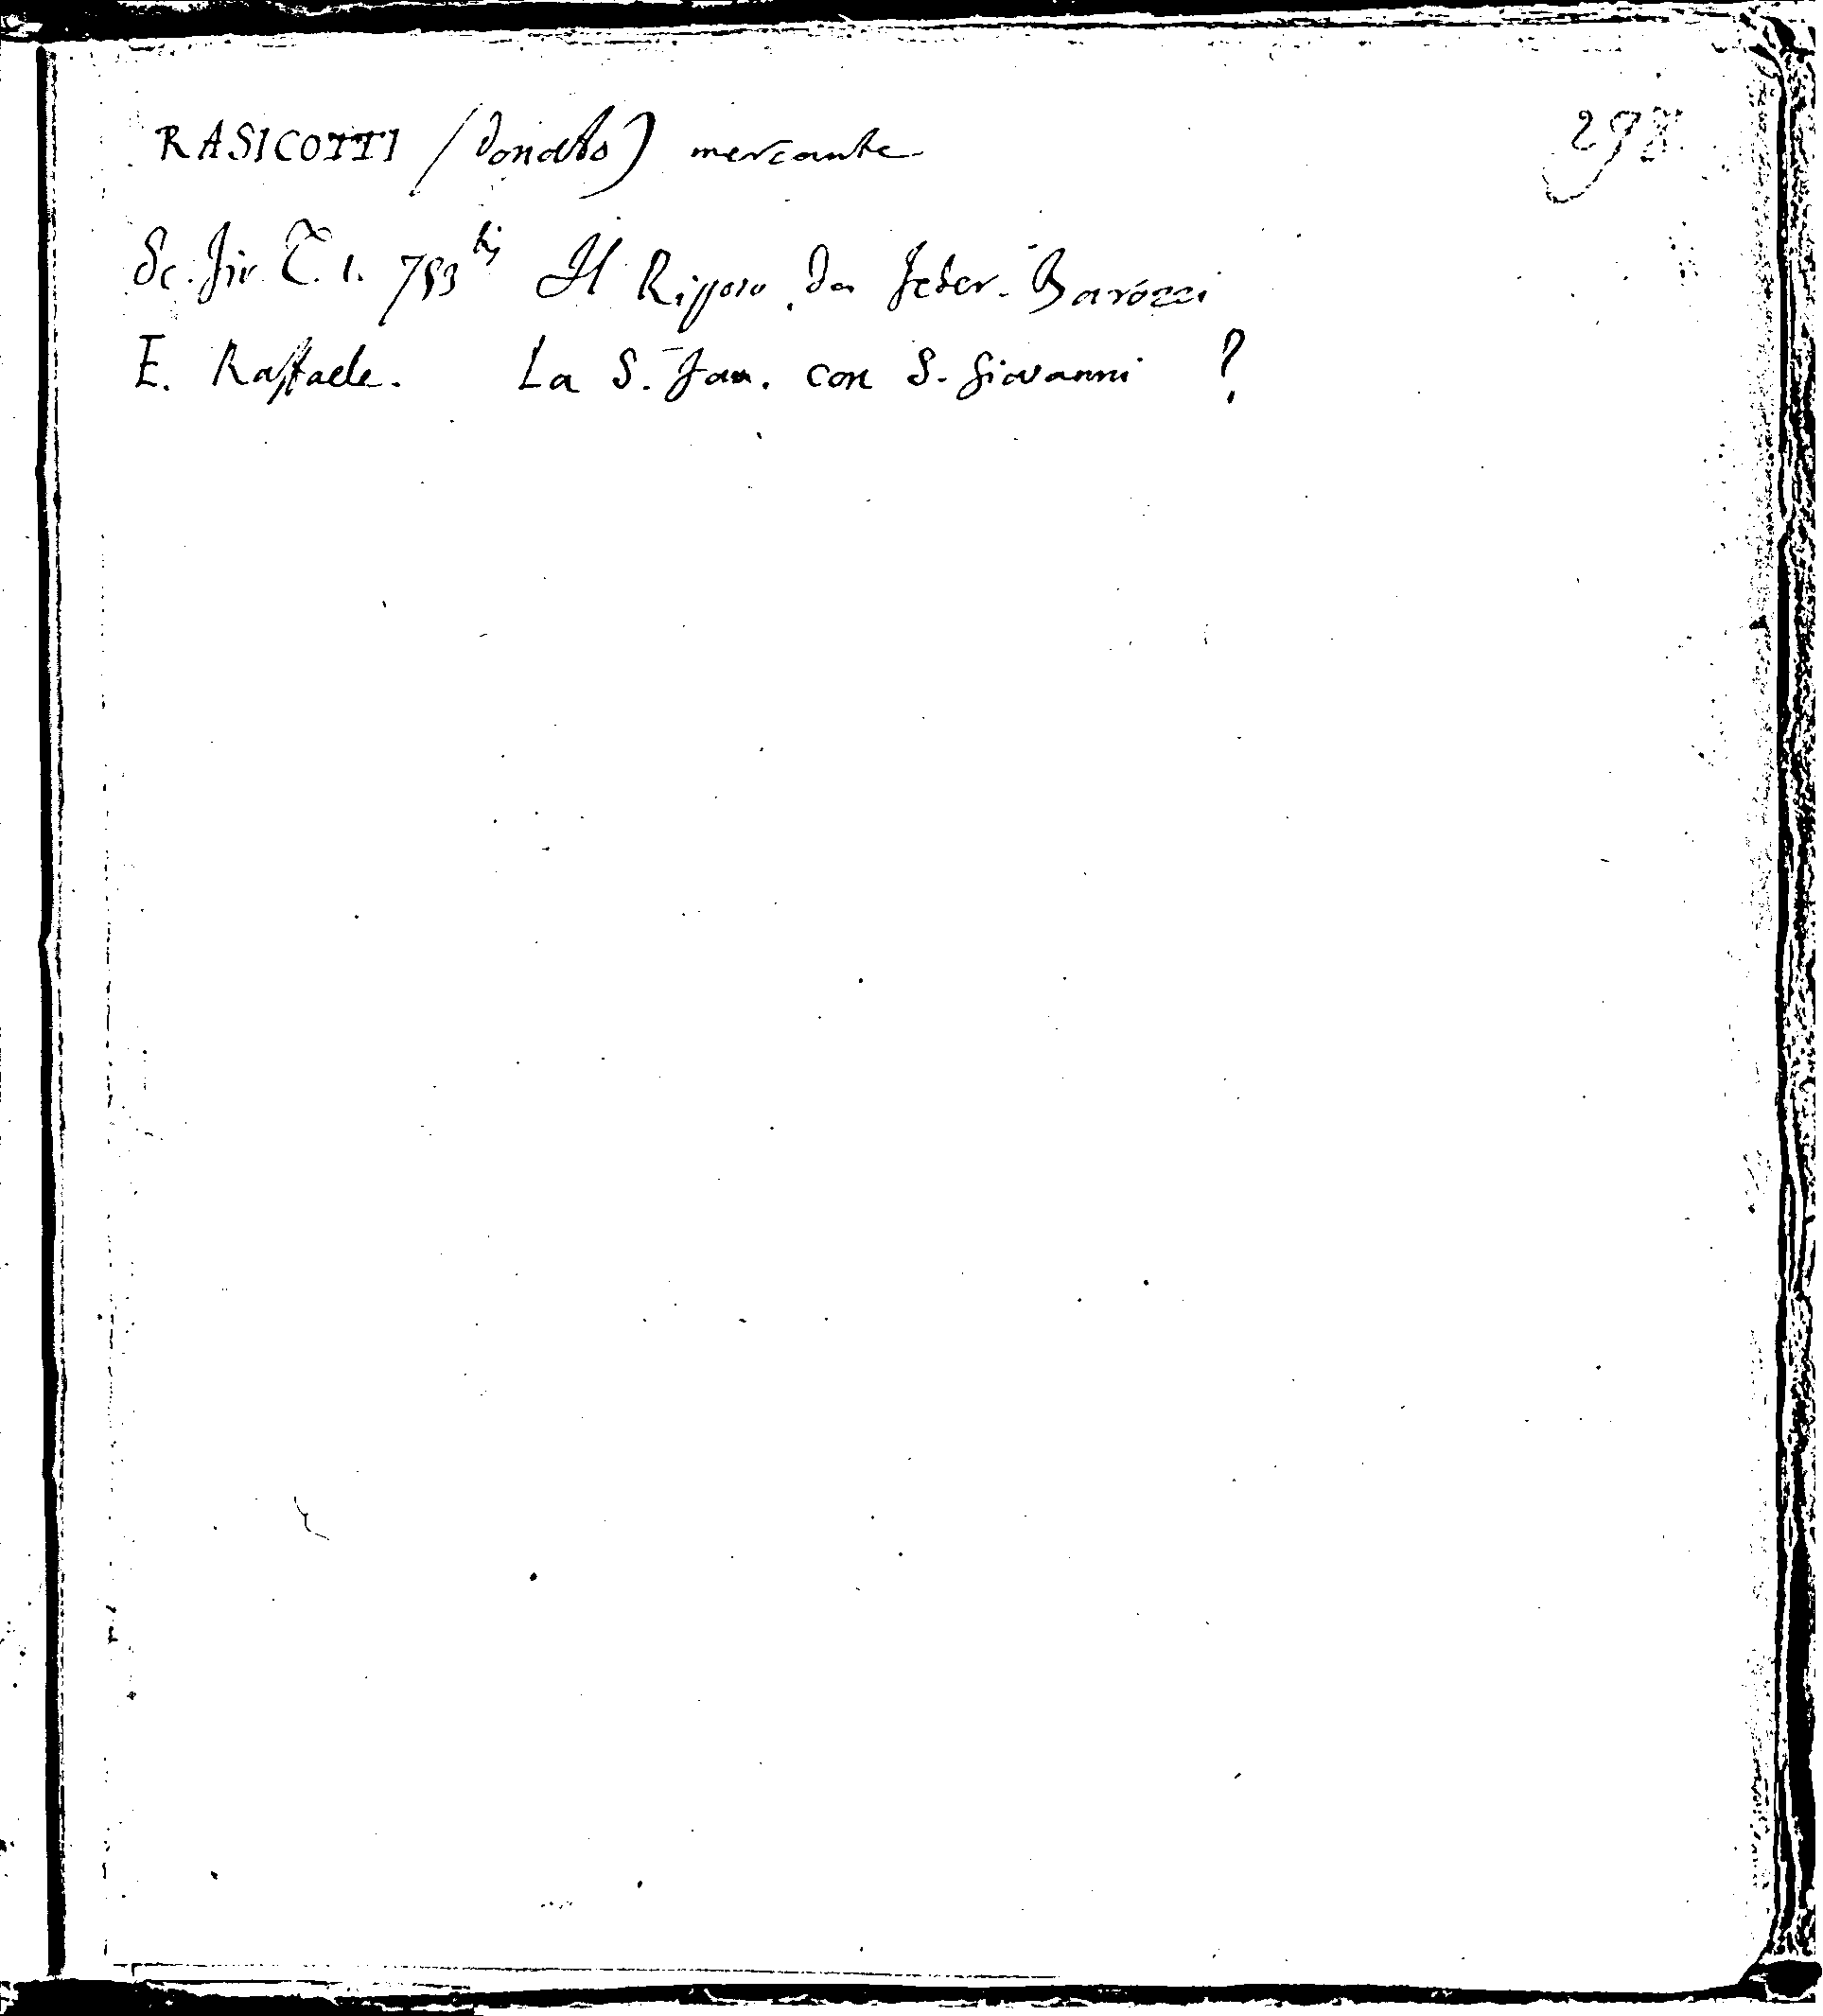 RASICOTTI (Donato) mercante 298.
Sc. Fir. T. 1. 753 bis Il Riposo da Feder. Barozzi
E. Raffaele. La S. Fam. con S. Giovanni ?